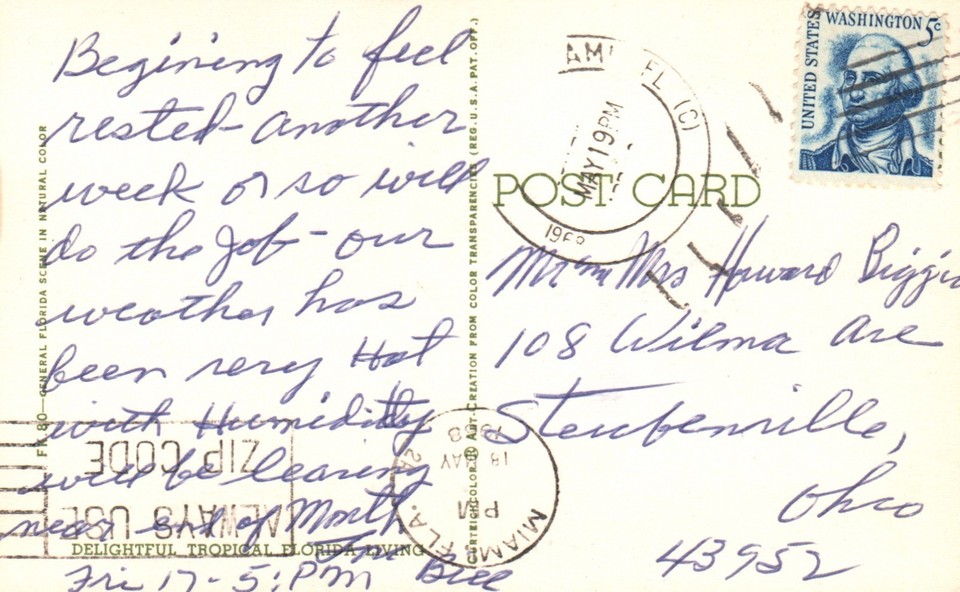 Begining to feel
rested - another
week or so will
do the Job - our
weather has
been very Hot
with Humidity
will be leaving
near end of Month
Fri 17 - 5:PM Bill
FK.80—GENERAL FLORIDA SCENE IN NATURAL COLOR
DELIGHTFUL TROPICAL FLORIDA LIVING
ART-CREATION FROM COLOR TRANSPARENCIES (REG. U.S.A. PAT. OFF.)
ZIP CODE
ALWAYS USE
MIAMI, FLA.
PM
18 MAY
1968
FL (C)
MAY 19 PM
UNITED STATES
WASHINGTON 5c
POST CARD
Mr and Mrs Howard
108 Wilma Ave
Steubenville,
Ohio
43952